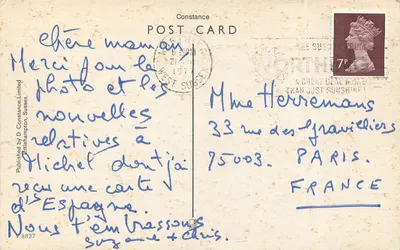 Constance
POST CARD
Chère maman,
Merci pour la
photo et les
nouvelles
relatives à
Michel dont j'ai
reçu une carte
d'Espagne.
Nous t'embrassons
Suzanne + Chris.
Mme Herremans
33 rue des Gravilliers
75003. PARIS.
FRANCE
7P
WEST SUSSEX
ORTHI
A GREAT DEAL MORE
THAN JUST SUNSHINE!
Published by D. Constance Limited
Littlehampton, Sussex.